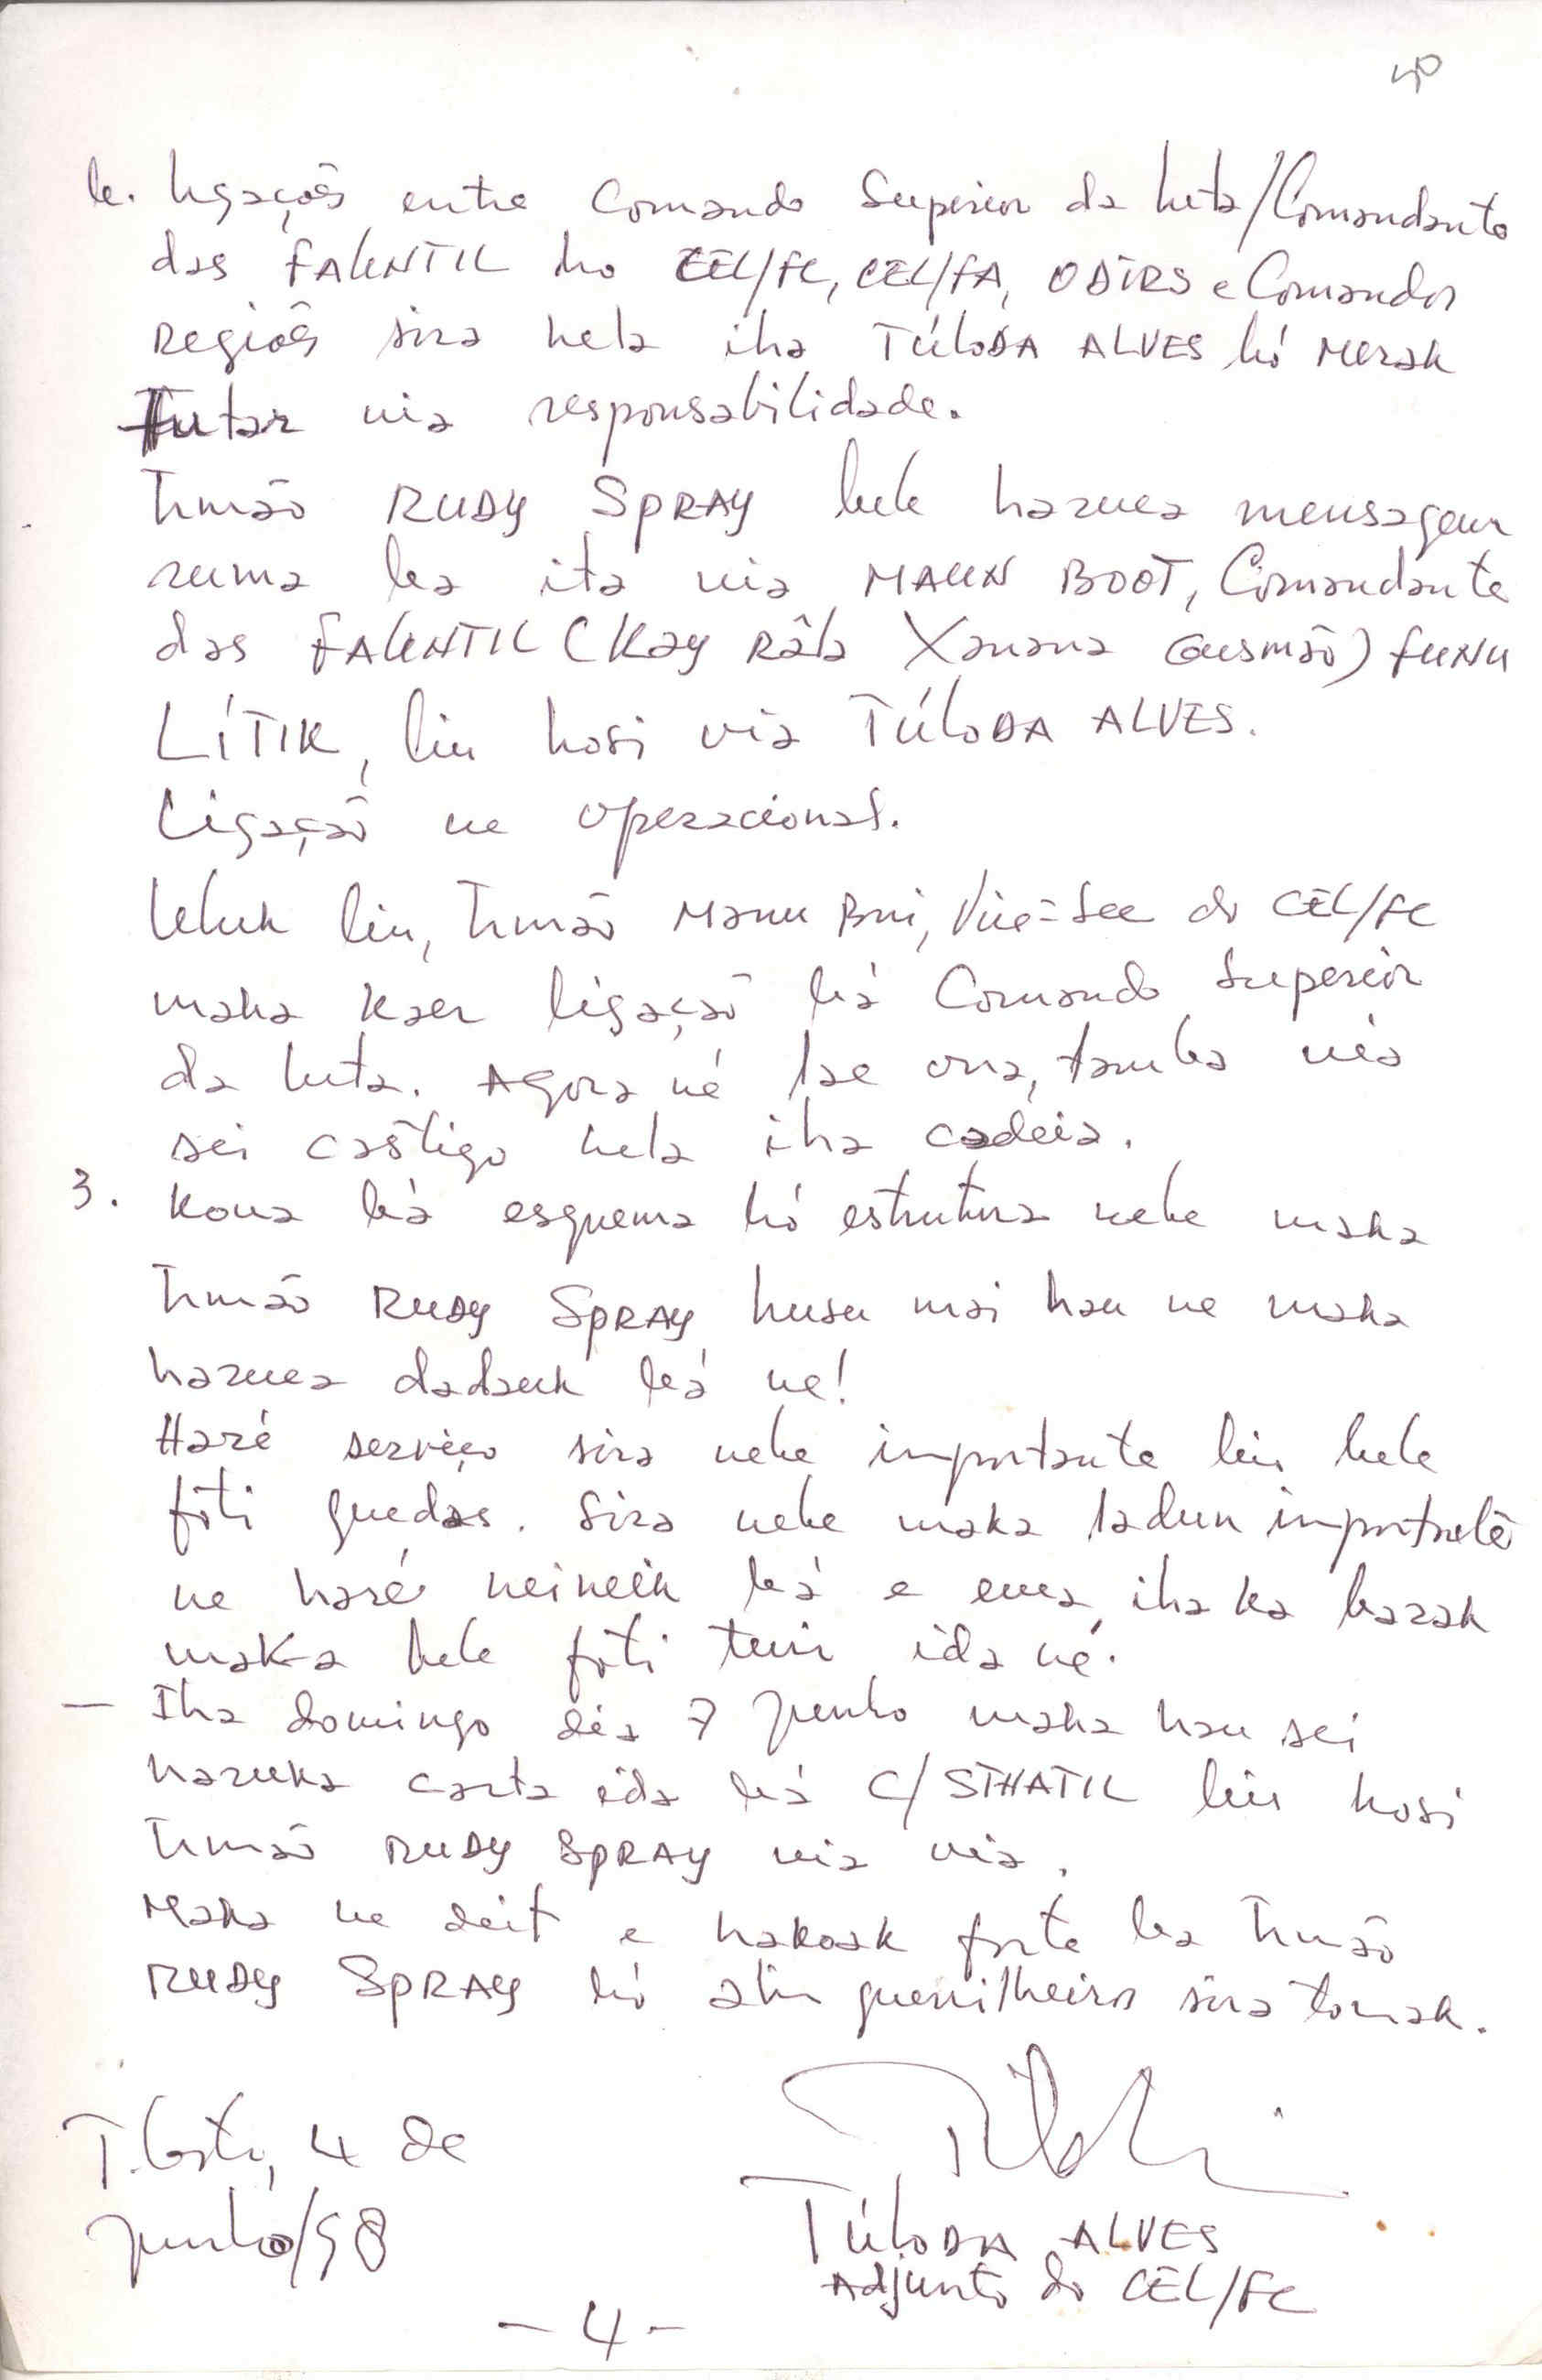 b. ligações entre Comando Superior da Luta/Comandante
das FALINTIL ho CEL/FC, CEL/FA, ODIRS e Comandos
Regiões sira hela iha TÚLODA ALVES hó Merak
Tutar nia responsabilidade.
Irmão RUDY SPRAY bele haruca mensagem
ruma ba ita nia MAUN BOOT, Comandante
das FALINTIL (Kay Râla Xanana Gusmão) FUNU
LÍTIK, liu hosi via TÚLODA ALVES.
Ligação ne operacional.
Uluk liu, Irmão Manu Bui, Vice-Sec do CEL/FC
maka kaer ligação bá Comando Superior
da Luta. Agora né lae ona, tamba nia
sei castigo hela iha cadeia.
3. Kona bá esquema hó estrutura nebe maka
Irmão RUDY SPRAY husu mai hau ne maka
haruca dadauk bá ne!
Haré serviço sira nebe importante liu bele
foti guedas. Sira nebe maka ladun importante
ne haré neineik bá e ema iha ka barak
maka bele foti tuir ida né.
— Iha domingo dia 7 Junho maka hau sei
haruka carta ida bá C/STHATIL liu hosi
Irmão RUDY SPRAY nia via.
Maka ne deit e hakoak forte ba Irmão
RUDY SPRAY hó alin guerrilheiros sira tomak.
T. Leste, 4 de
Junho/98
TÚLODA ALVES
Adjunto do CEL/FC
- 4 -